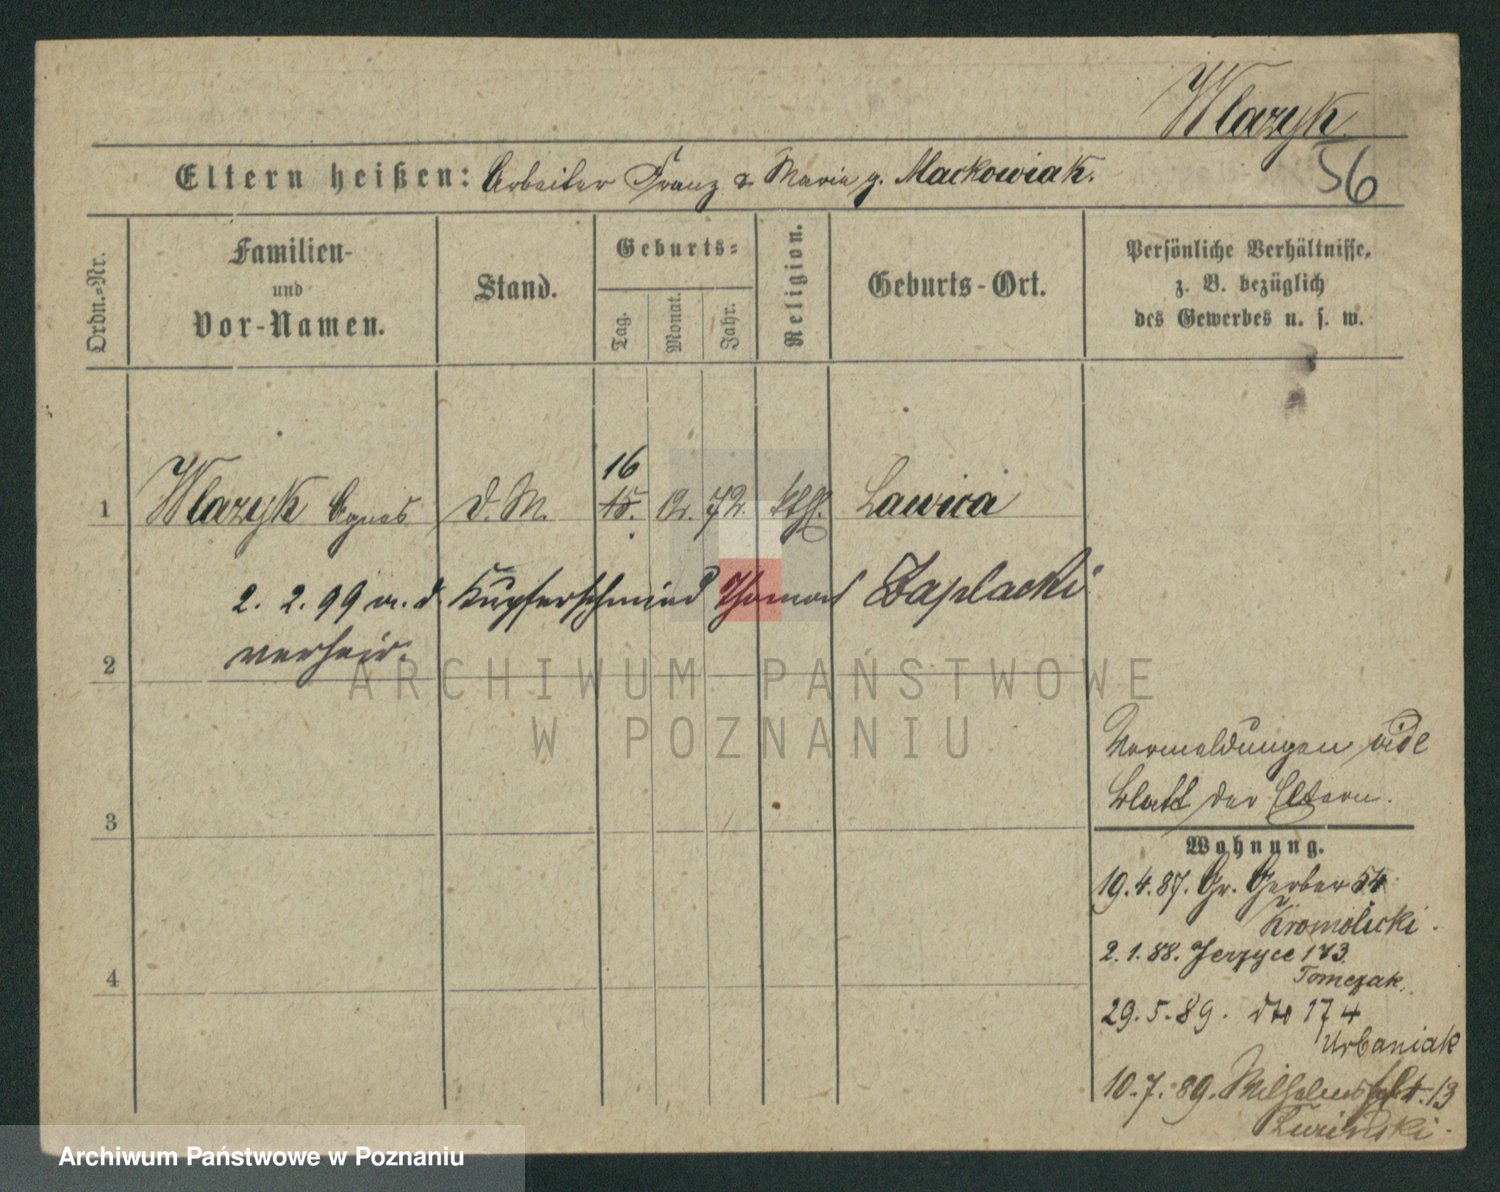 Wlazyk
56
Eltern heißen: Arbeiter Franz & Maria g. Mackowiak.
Ordn.=Nr.
Familien-
und
Vor-Namen.
Stand.
Geburts=
Tag.
Monat.
Jahr.
Religion.
Geburts-Ort.
Persönliche Verhältnisse,
z. B. bezüglich
des Gewerbes u. s. w.
16
1 Wlazyk Agnes d. M. 15. 12. 72. kth. Lawica
2. 2. 99 m. d. Kupferschmied Thomas Zaplacki
verheir.
2
ARCHIWUM PAŃSTWOWE
W POZNANIU
Vormeldungen vide
Blatt der Eltern.
3
Wohnung.
19. 4. 87. Gr. Gerber 54
Kromolicki.
2. 1. 88. Jerzyce 173
Tomczak.
4
29. 5. 89. dto 174
Urbaniak
10. 7. 89. Wilhelms 13
Archiwum Państwowe w Poznaniu